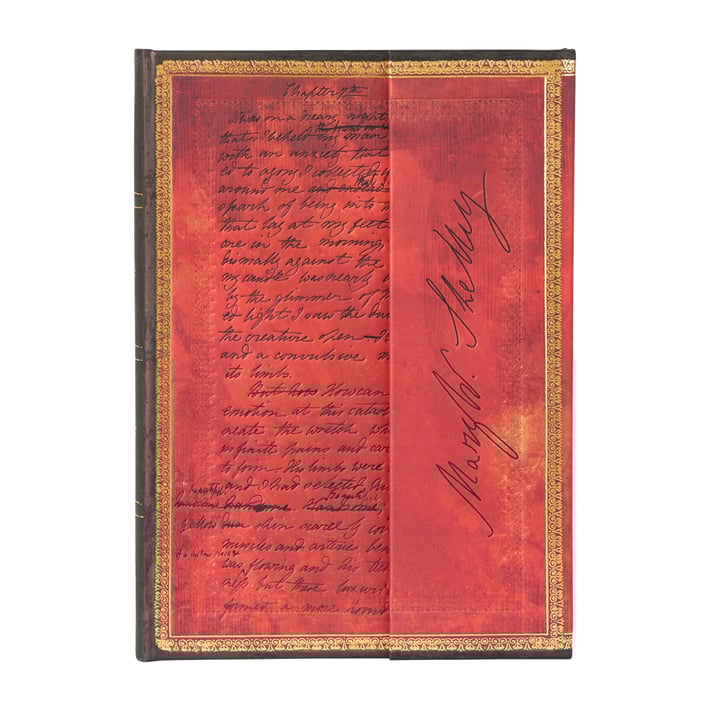 Chapter 7th
It was on a dreary night
the frame on
that I beheld my man
with an anxiety that
ed to agony I collected
around me and endea
spark of being into
that lay at my feet
one in the morning,
dismally against the
my candle was nearly
by the glimmer of
ed light I saw the du
the creature open - I
and a convulsive m
its limbs.
But how How can
emotion at this catas
create the wretch wh
infinite pains and car
to form. His limbs were
and I had selected
beautiful
handsome handsome. Handsome,
yellow dun skin scarcely cov
muscles and arteries ben
was flowing and his tee
ness but these luxuri
formed a more horri
Mary W. Shelley